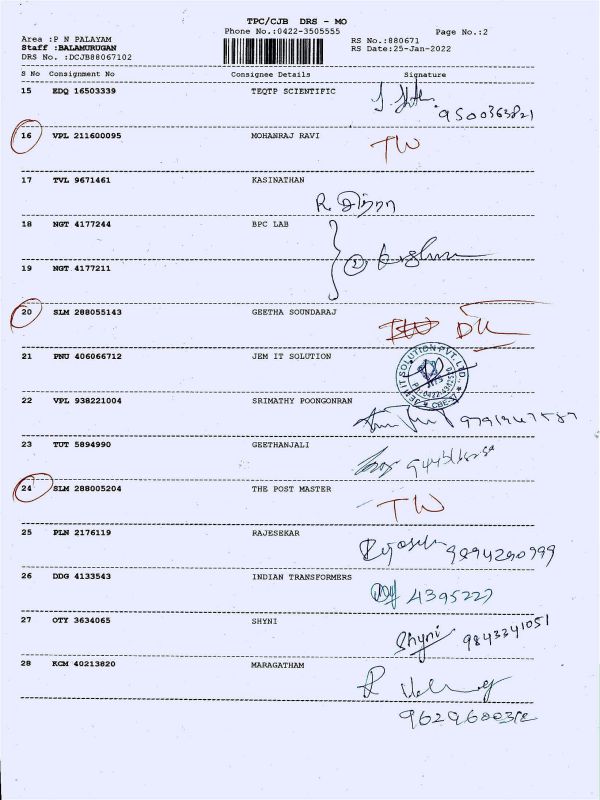 TPC/CJB DRS - MO
Phone No.:0422-3505555 Page No.:2
Area :P N PALAYAM RS No.:880671
Staff :BALAMURUGAN RS Date:25-Jan-2022
DRS No. :DCJB88067102
S No Consignment No Consignee Details Signature
15 EDQ 16503339 TEQTP SCIENTIFIC
9500363821
16 VPL 211600095 MOHANRAJ RAVI TW
17 TVL 9671461 KASINATHAN
R.
18 NGT 4177244 BPC LAB
19 NGT 4177211
20 SLM 288055143 GEETHA SOUNDARAJ
21 PNU 406066712 JEM IT SOLUTION
JEM IT SOLUTION PVT. LTD
22 VPL 938221004 SRIMATHY POONGONRAN
23 TUT 5894990 GEETHANJALI
24 SLM 288005204 THE POST MASTER TW
25 PLN 2176119 RAJESEKAR
9894290999
26 DDG 4133543 INDIAN TRANSFORMERS
4395227
27 OTY 3634065 SHYNI
Shyni 9843341051
28 KCM 40213820 MARAGATHAM
R